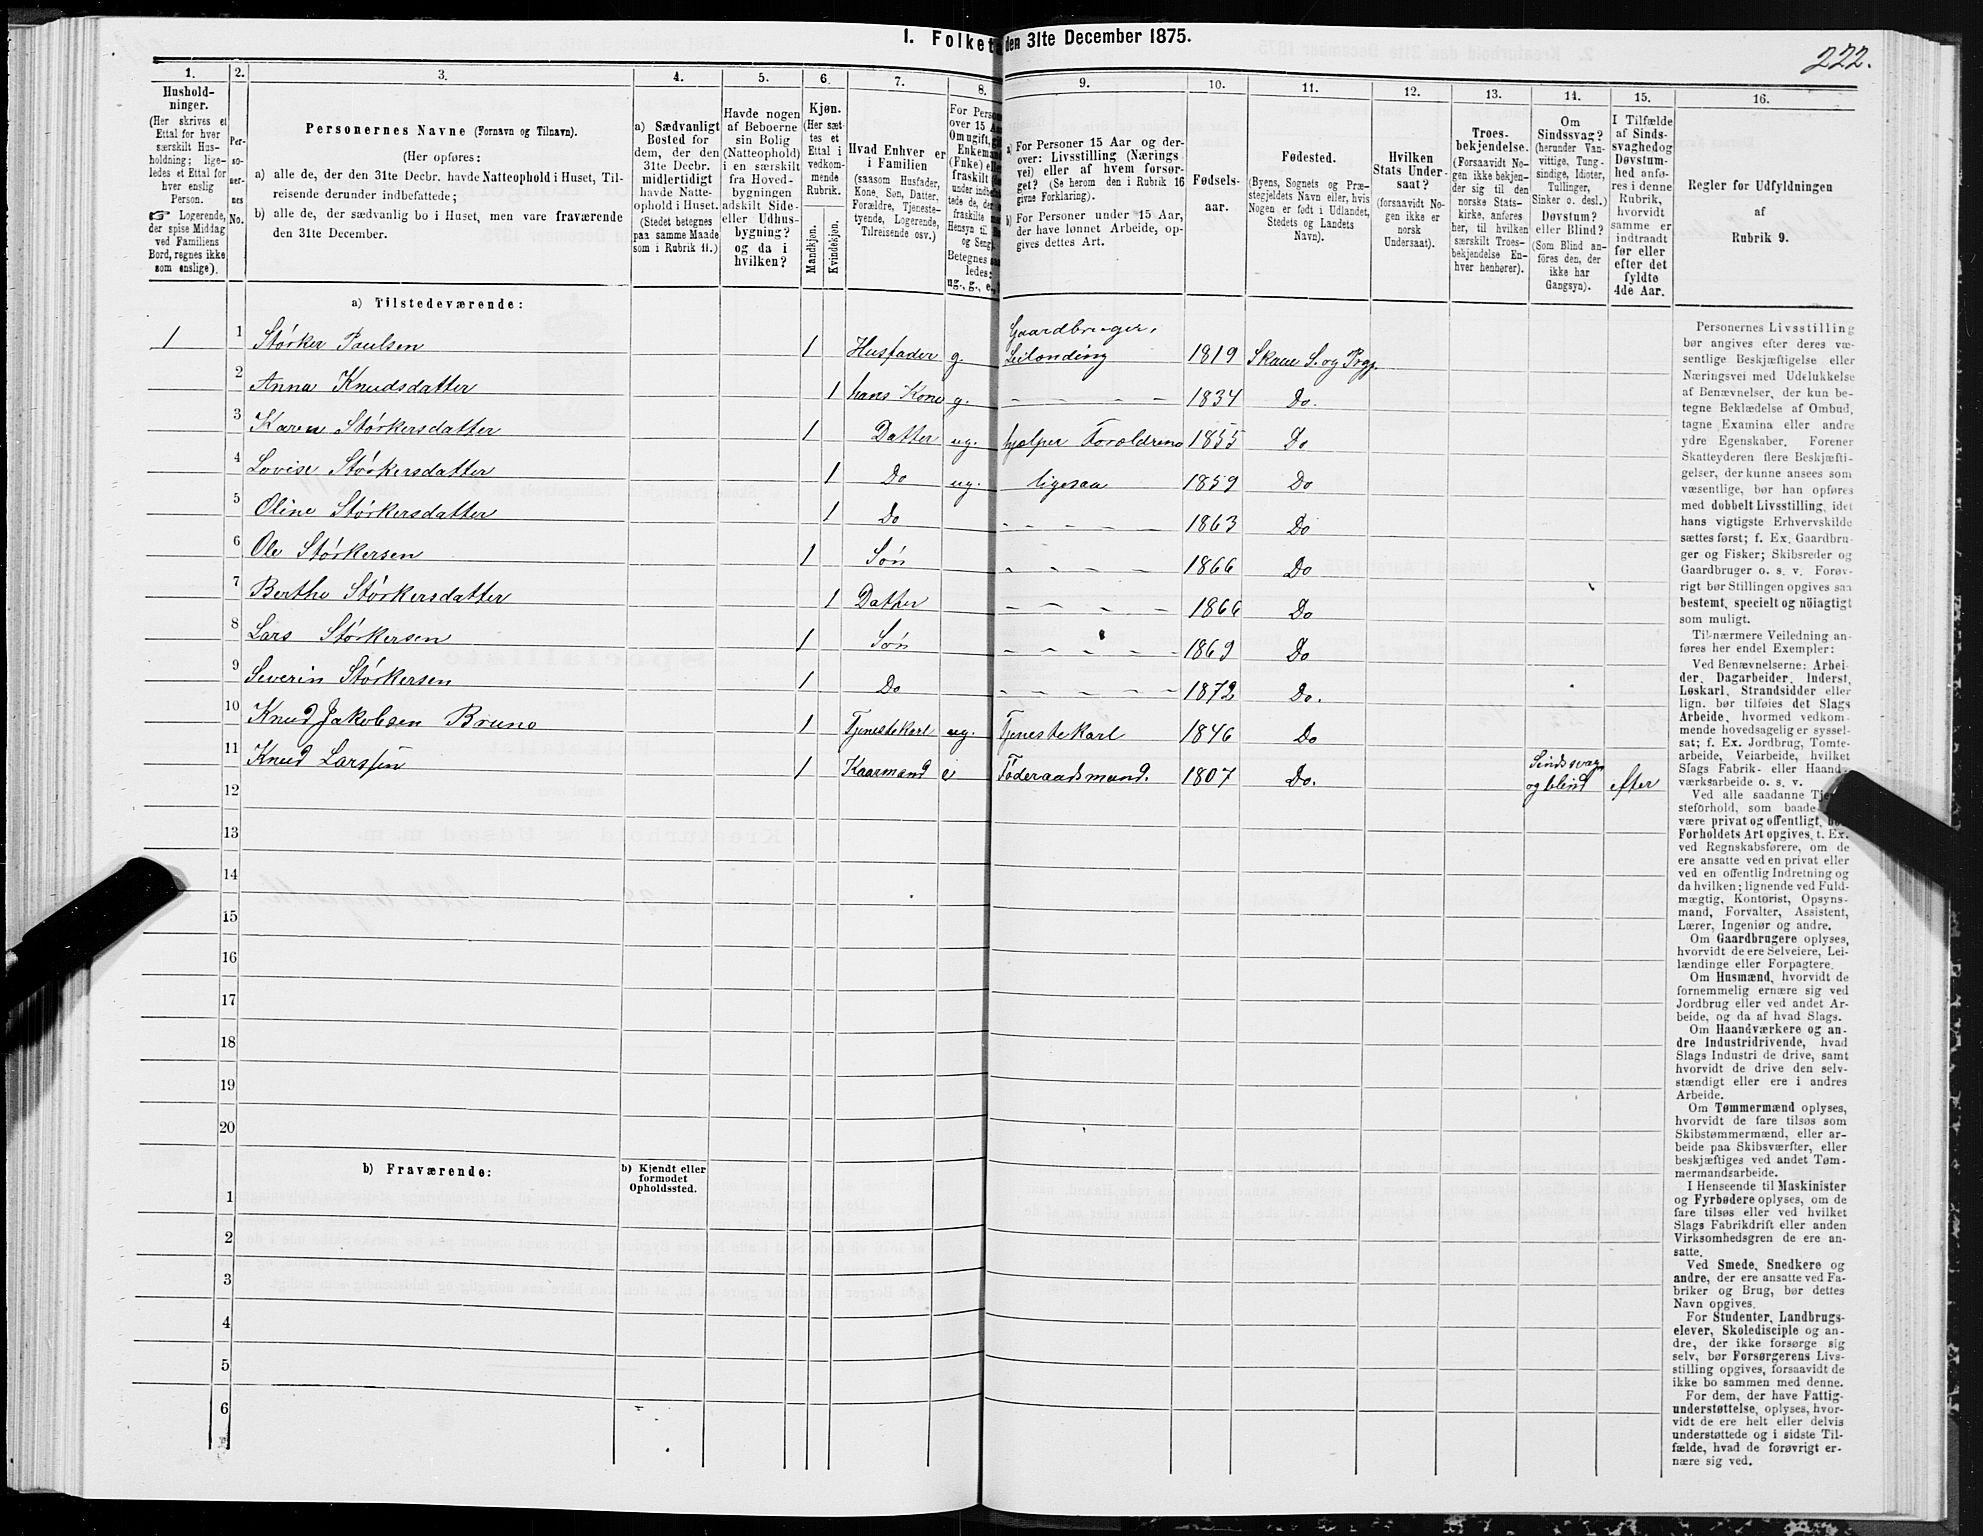 222.
1. Folket den 31te December 1875.
1. 2. 3. 4. 5. 6. 7. 8. 9. 10. 11. 12. 13. 14. 15. 16.
Hushold-
ninger.
(Her skrives et
Ettal for hver
særskilt Hus-
holdning; lige-
ledes et Ettal for
hver enslig
Person.
☞ Logerende,
der spise Middag
ved Familiens
Bord, regnes ikke
som enslige).
Per-
so-
ner-
nes
No.
Personernes Navne (Fornavn og Tilnavn).
(Her opføres:
a) alle de, der den 31te Decbr. havde Natteophold i Huset, Til-
reisende derunder indbefattede;
b) alle de, der sædvanlig bo i Huset, men vare fraværende
den 31te December.
a) Sædvanligt
Bosted for
dem, der den
31te Decbr.
midlertidigt
havde Natte-
ophold i Huset.
(Stedet betegnes
paa samme Maade
som i Rubrik 11.)
Havde nogen
af Beboerne
sin Bolig
(Natteophold)
i en særskilt
fra Hoved-
bygningen
adskilt Side-
eller Udhus-
bygning?
og da i
hvilken?
Kjøn.
(Her sæt-
tes et
Ettal i
vedkom-
mende
Rubrik.
Mandkjøn.
Kvindekjøn.
Hvad Enhver er
i Familien
(saasom Husfader,
Kone, Søn, Datter,
Forældre, Tjeneste-
tyende, Logerende,
Tilreisende osv.)
For Person
over 15 Aa
Om ugift, gi
Enkeman
(Fnke) elle
fraskilt
under indbe-
tede de, der
fraskilte
Hensyn til
og Seng).
Betegnes saa
ledes:
ug., g., e.,
a) For Personer 15 Aar og der-
over: Livsstilling (Nærings-
vei) eller af hvem forsør-
get? (Se herom den i Rubrik 16
givne Forklaring).
b) For Personer under 15 Aar,
der have lønnet Arbeide, op-
gives dettes Art.
Fødsels-
aar.
Fødested.
(Byens, Sognets og Præ-
stegjeldets Navn eller, hvis
Nogen er født i Udlandet,
Stedets og Landets
Navn).
Hvilken
Stats Under-
saat?
(forsaavidt No-
gen ikke er
norsk
Undersaat).
Troes-
bekjendelse.
(Forsaavidt No-
gen ikke bekjen-
der sig til den
norske Stats-
kirke, anføres
her, til hvilken
særskilt Troes-
bekjendelse En-
hver henhører).
Om
Sindssvag?
(herunder Van-
vittige, Tung-
sindige, Idioter,
Tullinger,
Sinker o. desl.)
Døvstum?
eller Blind?
(Som Blind an-
føres den, der
ikke har
Gangsyn).
I Tilfælde
af Sinds-
svaghed og
Døvstum-
hed anfø-
res i denne
Rubrik,
hvorvidt
samme er
indtraadt
før eller
efter det
fyldte
4de Aar.
Regler for Udfyldningen
af
Rubrik 9.
a) Tilstedeværende:
1 1 Størker Paulsen 1 Husfader g. Gaardbruger, Leilending 1819 Skaun S. og Prgj.
2 Anna Knudsdatter 1 hans Kone g. – – – – 1834 Do.
3 Karen Størkersdatter 1 Datter ug. hjælper Forældrene 1855 Do
4 Lovise Størkersdatter 1 Do ug. ligesaa 1859 Do
5 Oline Størkersdatter 1 Do – – – – 1863 Do
6 Ole Størkersen 1 Søn – – – – 1866 Do
7 Berthe Størkersdatter 1 Datter – – – – 1866 Do
8 Lars Størkersen 1 Søn – – – – 1869 Do
9 Severin Størkersen 1 Do – – – – 1872 Do.
10 Knud Jakobsen Bruno 1 Tjenestekarl ug. Tjenestekarl 1846 Do
11 Knud Larssen 1 Kaarmand e Føderaadsmand. 1807 Do. Sindssvag og blind efter
12
13
14
15
16
17
18
19
20
b) Fraværende:
b) Kjendt eller
formodet
Opholdssted.
1
2
3
4
5
6
Personernes Livsstilling
bør angives efter deres væ-
sentlige Beskjæftigelse eller
Næringsvei med Udelukkelse
af Benævnelser, der kun be-
tegne Beklædelse af Ombud,
tagne Examina eller andre
ydre Egenskaber. Forener
Skatteyderen flere Beskjæfti-
gelser, der kunne ansees som
væsentlige, bør han opføres
med dobbelt Livsstilling, idet
hans vigtigste Erhvervskilde
sættes først; f. Ex. Gaardbru-
ger og Fisker; Skibsreder og
Gaardbruger o. s. v. Forøv-
rigt bør Stillingen opgives saa
bestemt, specielt og nöiagtigt
som muligt.
Til nærmere Veiledning an-
føres her endel Exempler:
Ved Benævnelserne: Arbei-
der, Dagarbeider, Inderst,
Løskarl, Strandsidder eller
lign. bør tilføies det Slags
Arbeide, hvormed vedkom-
mende hovedsagelig er syssel-
sat; f. Ex. Jordbrug, Tomte-
arbeide, Veiarbeide, hvilket
Slags Fabrik- eller Haand-
værksarbeide o. s. v.
Ved alle saadanne Tje
steforhold, som baade
være privat og offentligt,
Forholdets Art opgives, t. Ex.
ved Regnskabsførere, om de
ere ansatte ved en privat eller
ved en offentlig Indretning og
da hvilken; lignende ved Fuld-
mægtig, Kontorist, Opsyns-
mand, Forvalter, Assistent,
Lærer, Ingeniør og andre.
Om Gaardbrugere oplyses,
hvorvidt de ere Selveiere, Lei-
lændinge eller Forpagtere.
Om Husmænd, hvorvidt de
fornemmelig ernære sig ved
Jordbrug eller ved andet Ar-
beide, og da af hvad Slags.
Om Haandværkere og an-
dre Industridrivende, hvad
Slags Industri de drive, samt
hvorvidt de drive den selv-
stændigt eller ere i andres
Arbeide.
Om Tømmermænd oplyses,
hvorvidt de fare tilsøs som
Skibstømmermænd, eller ar-
beide paa Skibsværfter, eller
beskjæftiges ved andet Tøm-
mermandsarbeide.
I Henseende til Maskinister
og Fyrbødere oplyses, om de
fare tilsøs eller ved hvilket
Slags Fabrikdrift eller anden
Virksomhedsgren de ere an-
satte.
Ved Smede, Snedkere og
andre, der ere ansatte ved Fa-
briker og Brug, bør dettes
Navn opgives.
For Studenter, Landbrugs-
elever, Skoledisciple og an-
dre, der ikke forsørge sig
selv, bør Forsørgerens Livs-
stilling opgives, forsaavidt de
ikke bo sammen med denne.
For dem, der have Fattig-
understøttelse, oplyses, hvor-
vidt de ere helt eller delvis
understøttede og i sidste Til-
fælde, hvad de forøvrigt er-
nære sig ved.